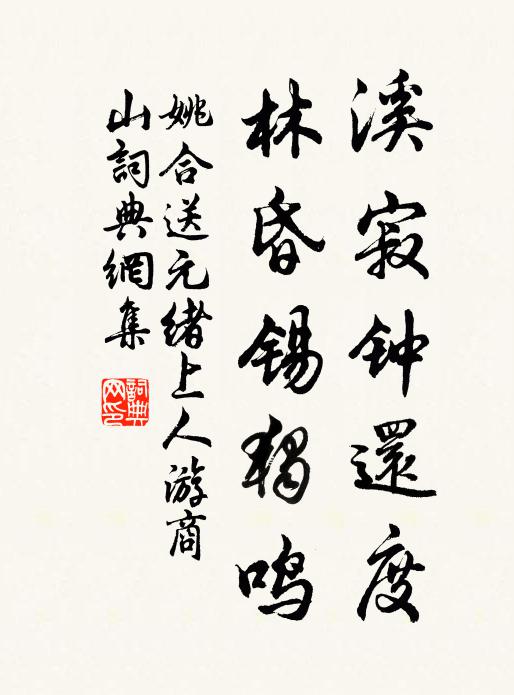 溪寂钟還度
林昏锡独鸣
姚合送元绪上人游商
山詞典網集
詞典
网印